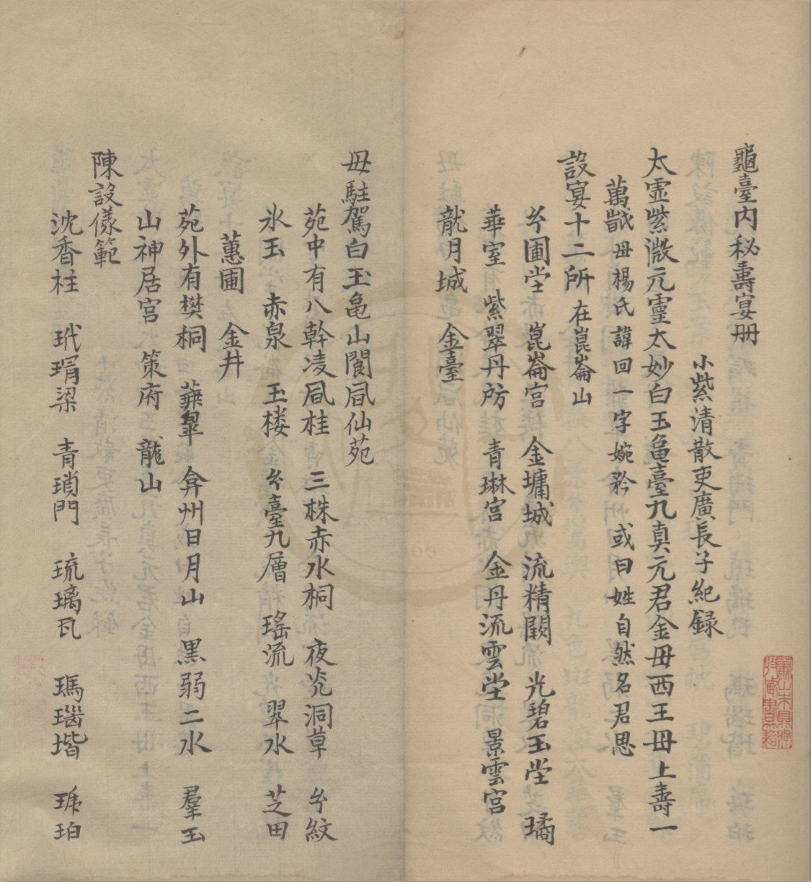 龜臺內秘壽宴册
小紫清散吏廣長子紀錄
太霊紫微元靈太妙白玉亀臺九真元君金毋西王毋上壽一
萬歳毋楊氏諱回一字婉矜 或曰姓自然名君思
設宴十二所 在崑崙山
玄圃堂 崑崙宫 金墉城 流精闕 光碧玉堂 璚
華室 紫翠丹房 青琳宫 金丹流雲堂 景雲宫
龍月城 金臺
毋駐駕白玉亀山閬風仙苑
苑中有八幹凌風桂 三株赤水桐 夜光洞草 玄紋
氷玉 赤泉 玉楼 玄臺九層 瑤流 翠水 芝田
蕙圃 金井
苑外有樊桐 弇州日月山 黒弱二水 羣玉
山神居宫 策府 龍山
陳設儀範
沈香柱 玳瑁梁 青瑣門 琉璃瓦 瑪瑙堦 琥珀